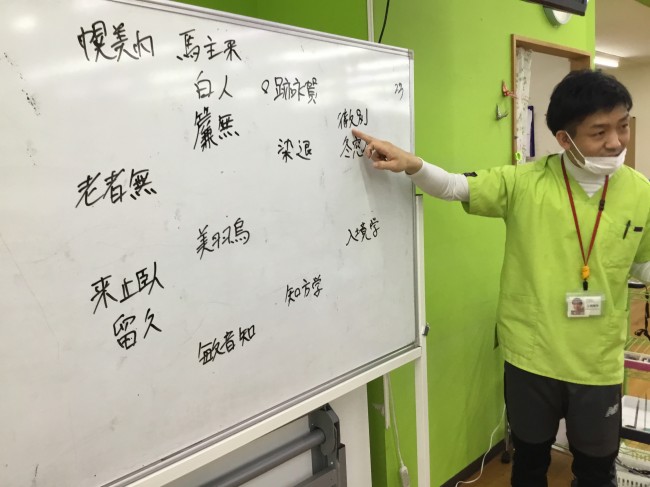 幌美内
馬主来
白人
簾無
老者無
美羽烏
来止臥
留久
敏音知
跡永賀
染退
徹別
入境学
知方学
23